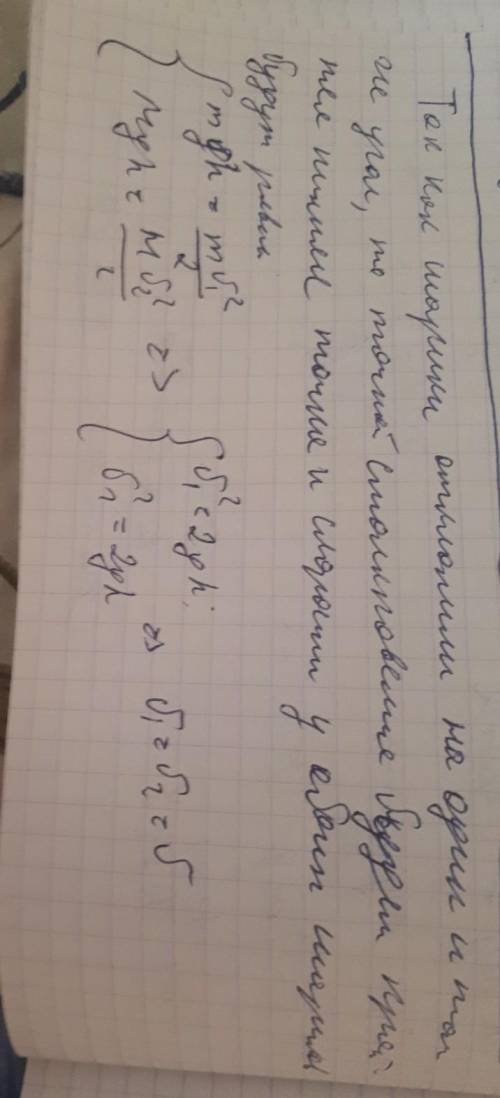 Так как шарики отклонили на один и тот
же угол, то точкой столкновение будет край-
няя нижняя точка и скорости у обоих шаров
будут равны
{ mgh = mv₁²/2
{ Mgh = Mv₂²/2 => { v₁² = 2gh; { v₂² = 2gh => v₁ = v₂ = v